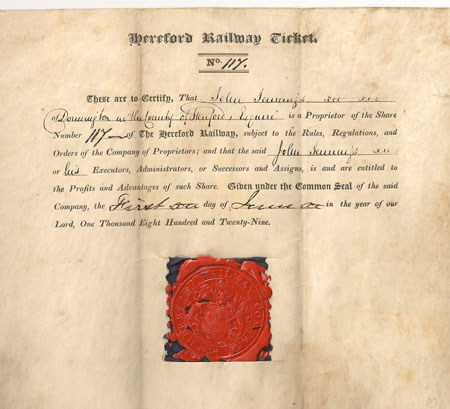 Hereford Railway Ticket.
No. 117.
These are to Certify, That John Jennings
of Donnington in the County of Hereford, Esquire is a Proprietor of the Share
Number 117 of The Hereford Railway, subject to the Rules, Regulations, and
Orders of the Company of Proprietors; and that the said John Jennings
or his Executors, Administrators, or Successors and Assigns, is and are entitled to
the Profits and Advantages of such Share. Given under the Common Seal of the said
Company, the First day of June in the year of our
Lord, One Thousand Eight Hundred and Twenty-Nine.